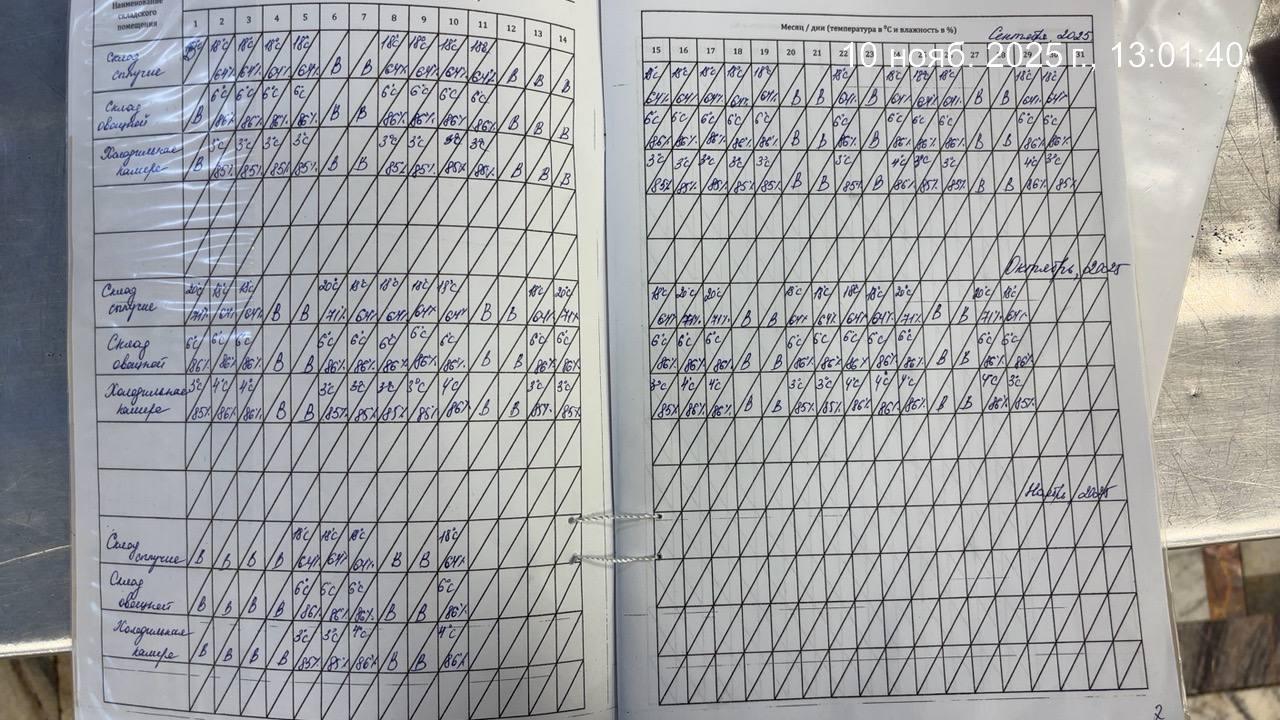 Наименование складского помещения
1 2 3 4 5 6 7 8 9 10 11 12 13 14
Склад сыпучие
18°C 18°C 18°C 18°C 18°C 18°C 18°C
64% 64% 64% 64% В В 64% 64% 64% 64% В В В
Склад овощной
6°C 6°C 6°C 6°C 6°C 6°C 6°C 6°C
В 86% 86% 86% 86% В В 86% 86% 86% 86% В В В
Холодильная камера
3°C 3°C 3°C 3°C 3°C 3°C 3°C 3°C
В 85% 85% 85% 85% В В 85% 85% 85% 85% В В В
Склад сыпучие
20°C 18°C 18°C 20°C 18°C 18°C 18°C 18°C 18°C 20°C
71% 64% 64% В В 71% 64% 64% 64% 64% В В 64% 71%
Склад овощной
6°C 6°C 6°C 6°C 6°C 6°C 6°C 6°C 6°C 6°C
86% 86% 86% В В 86% 86% 86% 86% 86% В В 86% 86%
Холодильная камера
3°C 4°C 4°C 3°C 3°C 3°C 3°C 4°C 3°C 3°C
85% 86% 86% В В 85% 85% 85% 85% 86% В В 85% 85%
Склад сыпучие
18°C 18°C 18°C 18°C
В В В В 64% 64% 64% В В 64%
Склад овощной
6°C 6°C 6°C 6°C
В В В В 86% 86% 86% В В 86%
Холодильная камера
3°C 3°C 4°C 4°C
В В В В 85% 85% 86% В В 86%
Месяц / дни (температура в °C и влажность в %)
Сентябрь, 2025
10 нояб. 2025 г., 13:01:40
15 16 17 18 19 20 21 22 23 24 25 26 27 28 29 30 31
18°C 18°C 18°C 18°C 18°C 18°C 18°C 18°C 18°C 18°C 18°C
64% 64% 64% 64% 64% В В 64% В 64% 64% 64% В В 64% 64%
6°C 6°C 6°C 6°C 6°C 6°C 6°C 6°C 6°C 6°C 6°C
86% 86% 86% 86% 86% В В 86% В 86% 86% 86% В В 86% 86%
3°C 3°C 3°C 3°C 3°C 3°C 4°C 3°C 3°C 4°C 3°C
85% 85% 85% 85% 85% В В 85% В 86% 85% 85% В В 86% 85%
Октябрь, 2025
18°C 20°C 20°C 18°C 18°C 18°C 18°C 20°C 20°C 18°C
64% 71% 71% В В 64% 64% 64% 64% 71% В В 71% 64%
6°C 6°C 6°C 6°C 6°C 6°C 6°C 6°C 6°C 6°C
86% 86% 86% В В 86% 86% 86% 86% 86% В В 86% 86%
3°C 4°C 4°C 3°C 3°C 4°C 4°C 4°C 4°C 3°C
85% 86% 86% В В 85% 85% 86% 86% 85% В В 86% 85%
Ноябрь, 2025
2